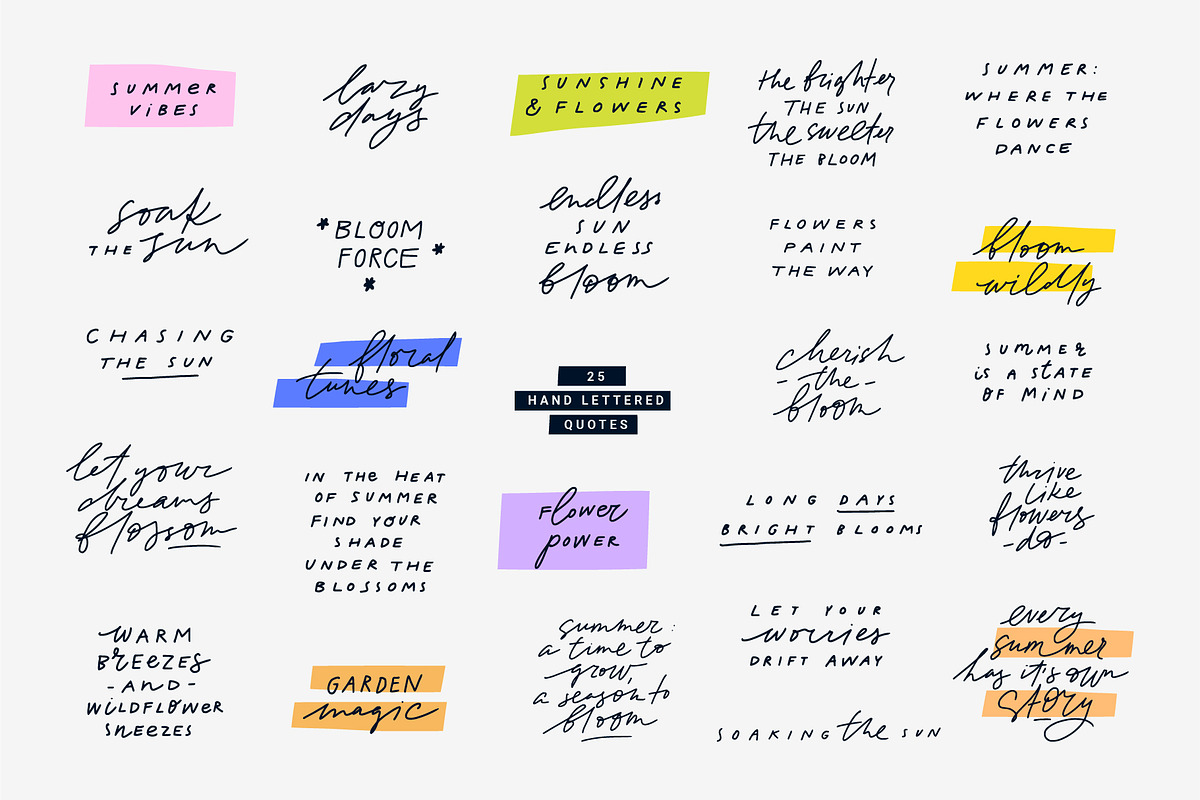 SUMMER
VIBES
lazy
days
SUNSHINE
& FLOWERS
the brighter
THE SUN
the sweeter
THE BLOOM
SUMMER:
WHERE THE
FLOWERS
DANCE
soak
THE sun
*BLOOM
FORCE*
*
endless
SUN
ENDLESS
bloom
FLOWERS
PAINT
THE WAY
bloom
wildly
CHASING
THE SUN
floral
tunes
25
HAND LETTERED
QUOTES
cherish
-the-
bloom
SUMMER
is A STATE
OF MIND
let your
dreams
blossom
IN THE HEAT
OF SUMMER
FIND YOUR
SHADE
UNDER THE
BLOSSOMS
Flower
POWER
LONG DAYS
BRIGHT BLOOMS
thrive
like
flowers
-do-
WARM
BREEZES
-AND-
WILDFLOWER
SNEEZES
GARDEN
magic
summer:
a time to
grow,
a season to
bloom
LET YOUR
worries
DRIFT AWAY
SOAKING the SUN
every
summer
has it's own
story